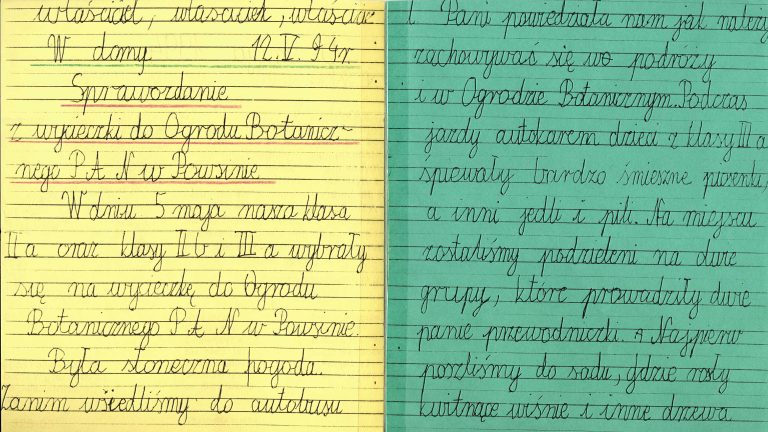 właściciel, właściciel, właścic
W domy 12.V.94r.
Sprawozdanie
z wycieczki do Ogrodu Botanicz-
nego P A N w Powsinie
W dniu 5 maja nasza klasa
II a oraz klasy II b i III a wybrały
się na wycieczkę do Ogrodu
Botanicznego P A N w Powsinie.
Była słoneczna pogoda.
Zanim wsiedliśmy do autobusu
Pani powiedziała nam jak należy
zachowywać się wo podróży
i w Ogrodzie Botanicznym. Podczas
jazdy autokarem dzieci z klasy III a
śpiewały bardzo śmieszne piosenki,
a inni jedli i pili. Na miejscu
zostaliśmy podzieleni na dwie
grupy, które prowadziły dwie
panie przewodniczki. Najpierw
poszliśmy do sadu, gdzie rosły
kwitnące wiśnie i inne drzewa